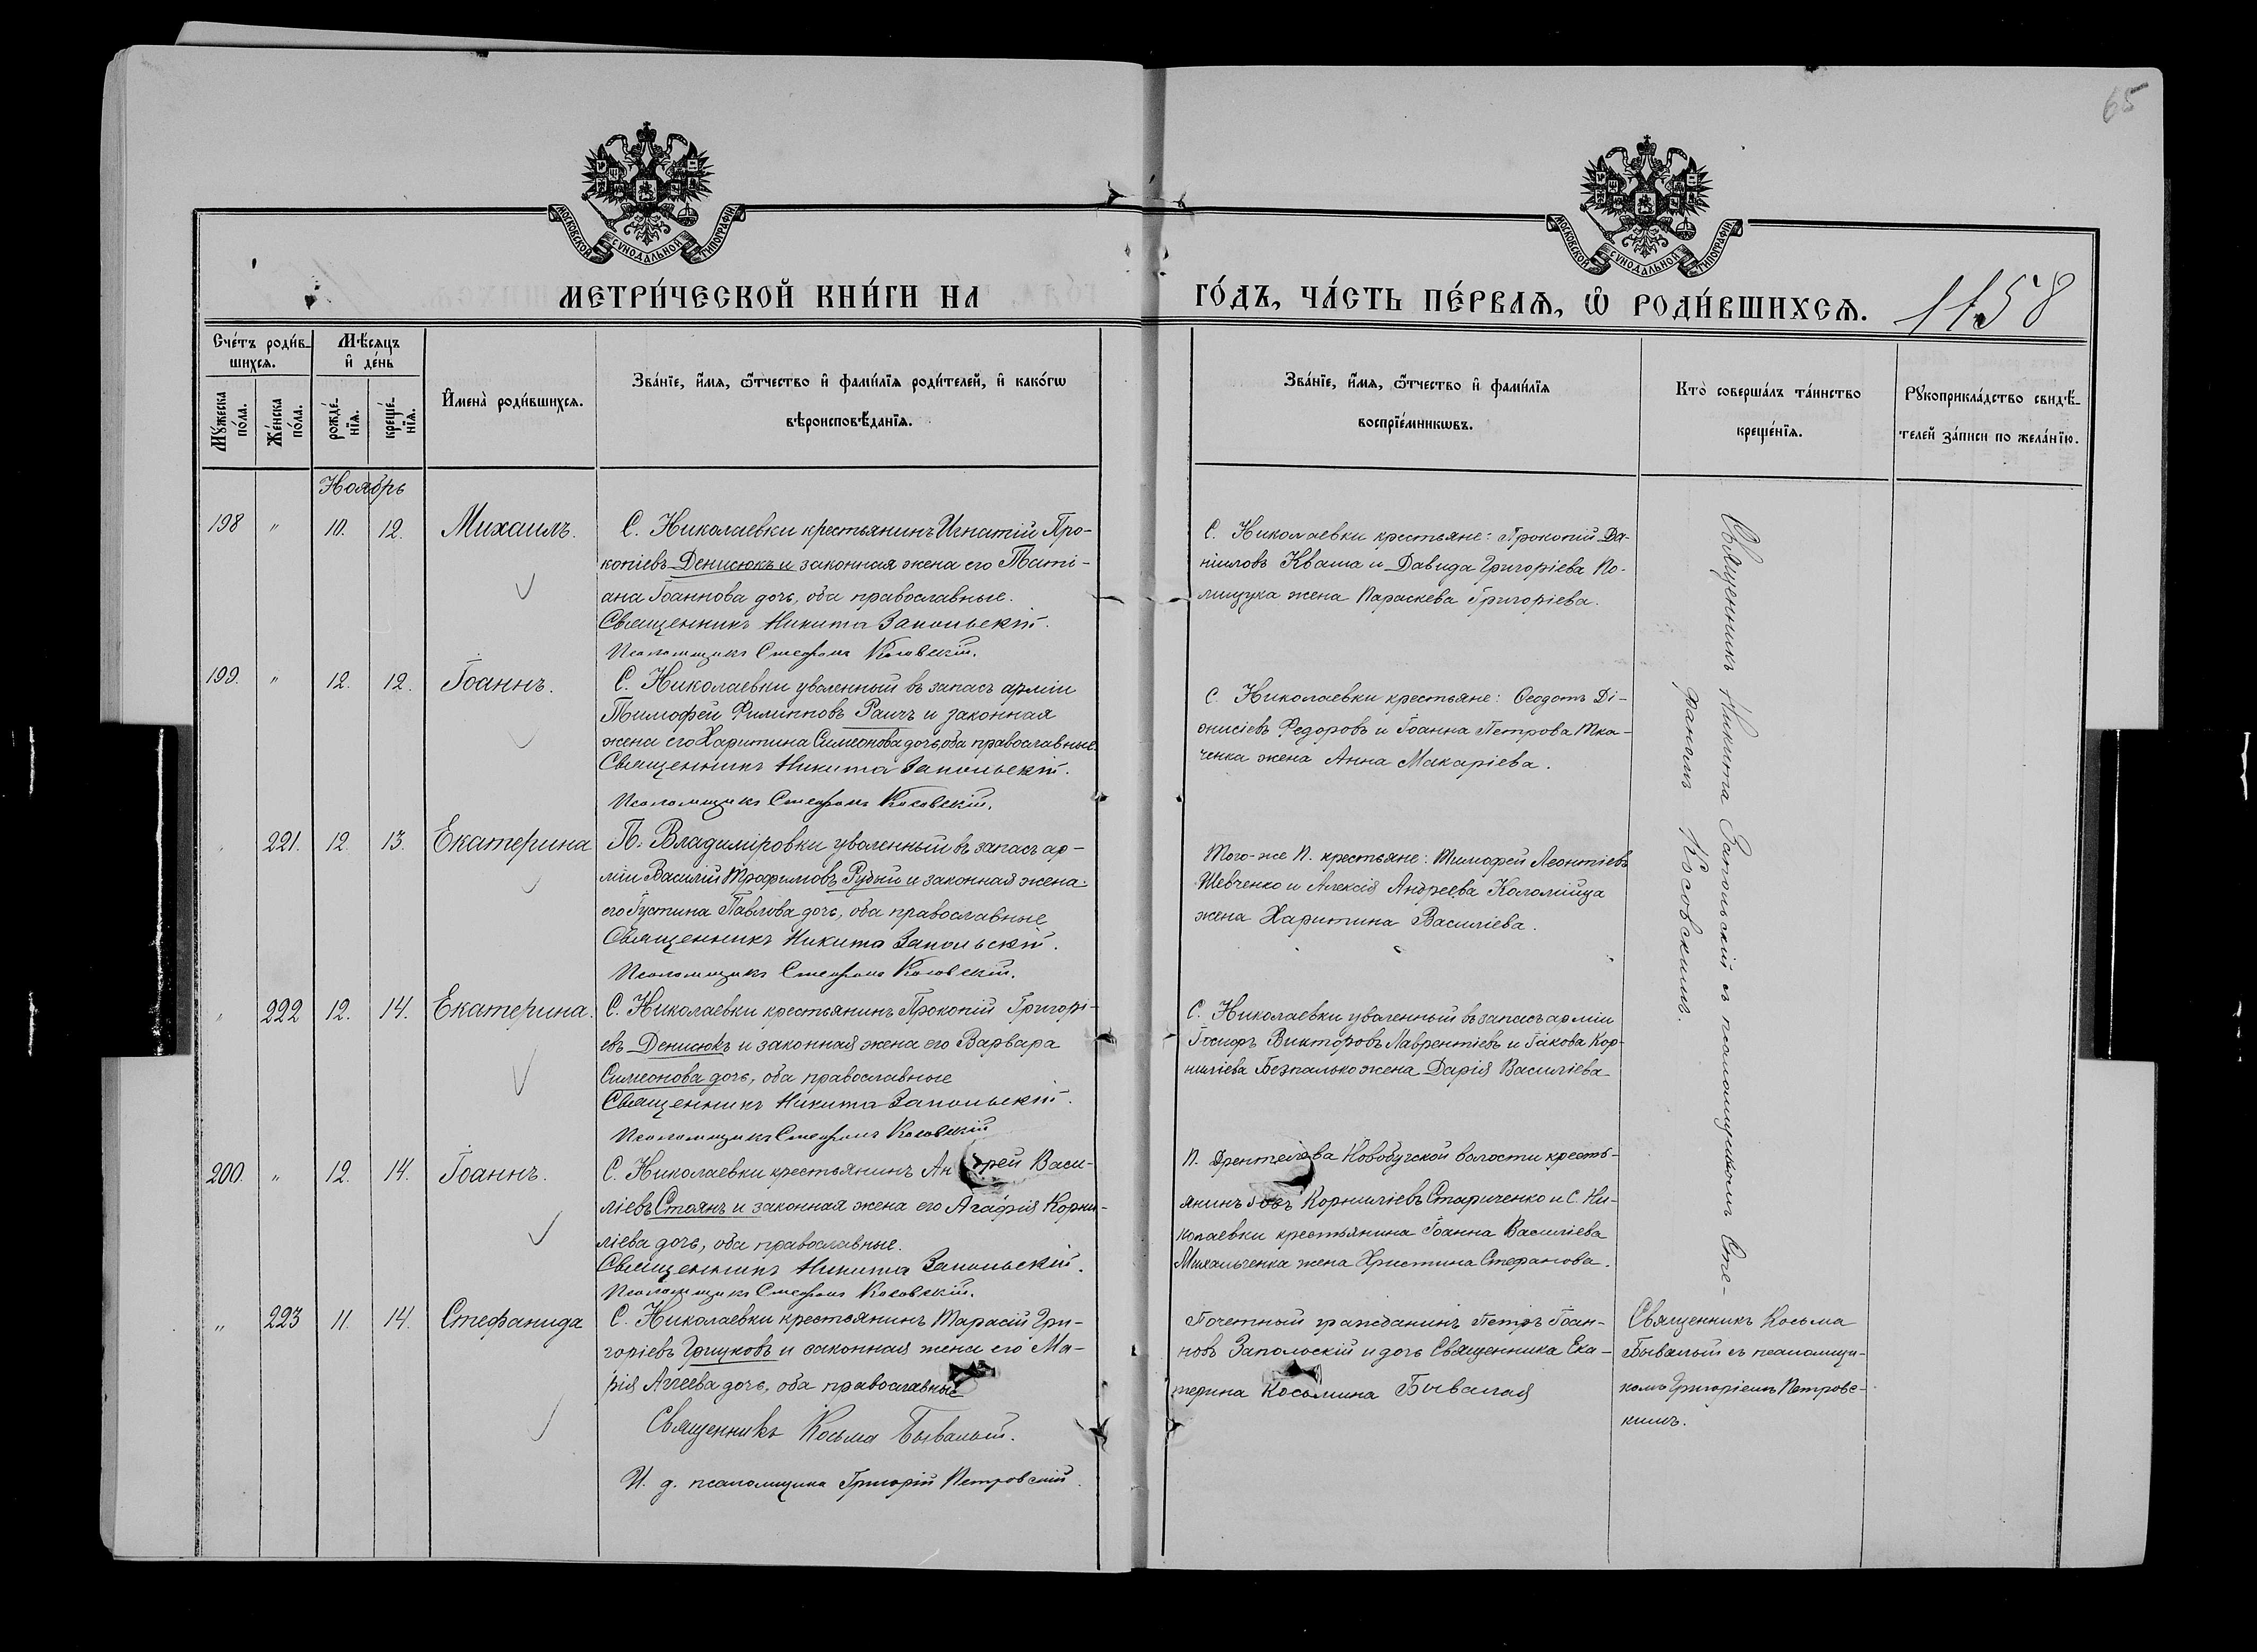 65
МОСКОВСКОЙ СѴНОДАЛЬНОЙ ТИПОГРАФІИ
МОСКОВСКОЙ СѴНОДАЛЬНОЙ ТИПОГРАФІИ
МЕТРИ́ЧЕСКОЙ КНИ́ГИ НА
ГО́ДЪ, ЧА́СТЬ ПЕ́РВАЯ, Ѡ҆ РОДИ́ВШИХСЯ.
1158
Сче́тъ роди́в-
шихся.
Мѣ́сяцъ
и҆ де́нь
Му́жеска
по́ла.
Же́нска
по́ла.
рожде́-
нїя.
креще́-
нїя.
И҆мена̀ роди́вшихся.
Зва́нїе, и҆́мя, ѻ҆́тчество и҆ фами́лїя роди́телей, и҆ како́гѡ
вѣроисповѣ́данїя.
Зва́нїе, и҆́мя, ѻ҆́тчество и҆ фами́лїя
воспрїе́мникѡвъ.
Кто̀ соверша́лъ та́инство
креще́нїя.
Рꙋкоприкла́дство свидѣ́-
телей за́писи по жела́нїю.
Ноябрь
198 " 10. 12. Михаилъ.
С. Николаевки крестьянинъ Игнатій Про-
копіевъ Денисюкъ и законная жена его Таті-
ана Іоаннова дочь, оба православные.
Священникъ Никита Запольскій.
Псаломщикъ Стефанъ Косовскій.
С. Николаевки крестьяне: Прокопій Да-
ніиловъ Кваша и Давида Григоріева По-
лищука жена Параскева Григоріева.
199. " 12. 12. Іоаннъ.
С. Николаевки уволенный въ запасъ арміи
Тимофей Филипповъ Раичъ и законная
жена его Харитина Симеонова дочь, оба православные.
Священникъ Никита Запольскій.
Псаломщикъ Стефанъ Косовскій.
С. Николаевки крестьяне: Ѳеодотъ Ді-
онисіевъ Федоровъ и Іоанна Петрова Тка-
ченка жена Анна Макаріева.
221. 12. 13. Екатерина
П. Владиміровки уволенный въ запасъ ар-
міи Василій Трофимовъ Рудый и законная жена
его Іустина Павлова дочь, оба православные
Священникъ Никита Запольскій.
Псаломщикъ Стефанъ Косовскій.
Того-же П. крестьяне: Тимофей Леонтіевъ
Шевченко и Алексія Андреева Коломійца
жена Харитина Василіева.
" 222 12. 14. Екатерина.
С. Николаевки крестьянинъ Прокопій Григорі-
евъ Денисюкъ и законная жена его Варвара
Симеонова дочь, оба православные
Священникъ Никита Запольскій.
Псаломщикъ Стефанъ Косовскій
С. Николаевки уволенный въ запасъ арміи
Іосифъ Викторовъ Лаврентіевъ и Іакова Кор-
нилієва Безпалько жена Дарія Василіева
200. " 12. 14. Іоаннъ.
С. Николаевки крестьянинъ Андрей Васи-
ліевъ Стоянъ и законная жена его Агафія Корни-
ліева дочь, оба православные.
Священникъ Никита Запольскій.
Псаломщикъ Стефанъ Косовскій.
П. Новобугской волости кресть-
янинъ Корниліевъ Стариченко и С. Ни-
колаевки крестьянина Іоанна Василіева
Михальченка жена Христина Стефанова.
Священникъ Никита Запольскій съ псаломщикомъ Сте-
фаномъ Косовскимъ.
" 223 11. 14. Стефанида
С. Николаевки крестьянинъ Тарасій Гри-
горіевъ Грицковъ и законная жена его Ма-
рія Аггеева дочь, оба православные
Священникъ Косьма Бывалый.
И. д. псаломщика Григорій Петровскій.
Почетный гражданинъ Петръ Іоан-
новъ Запольскій и дочь Священника Ека-
терина Косьмина Бывалая
Священникъ Косьма
Бывалый съ псаломщи-
комъ Григоріемъ Петровс-
кимъ.